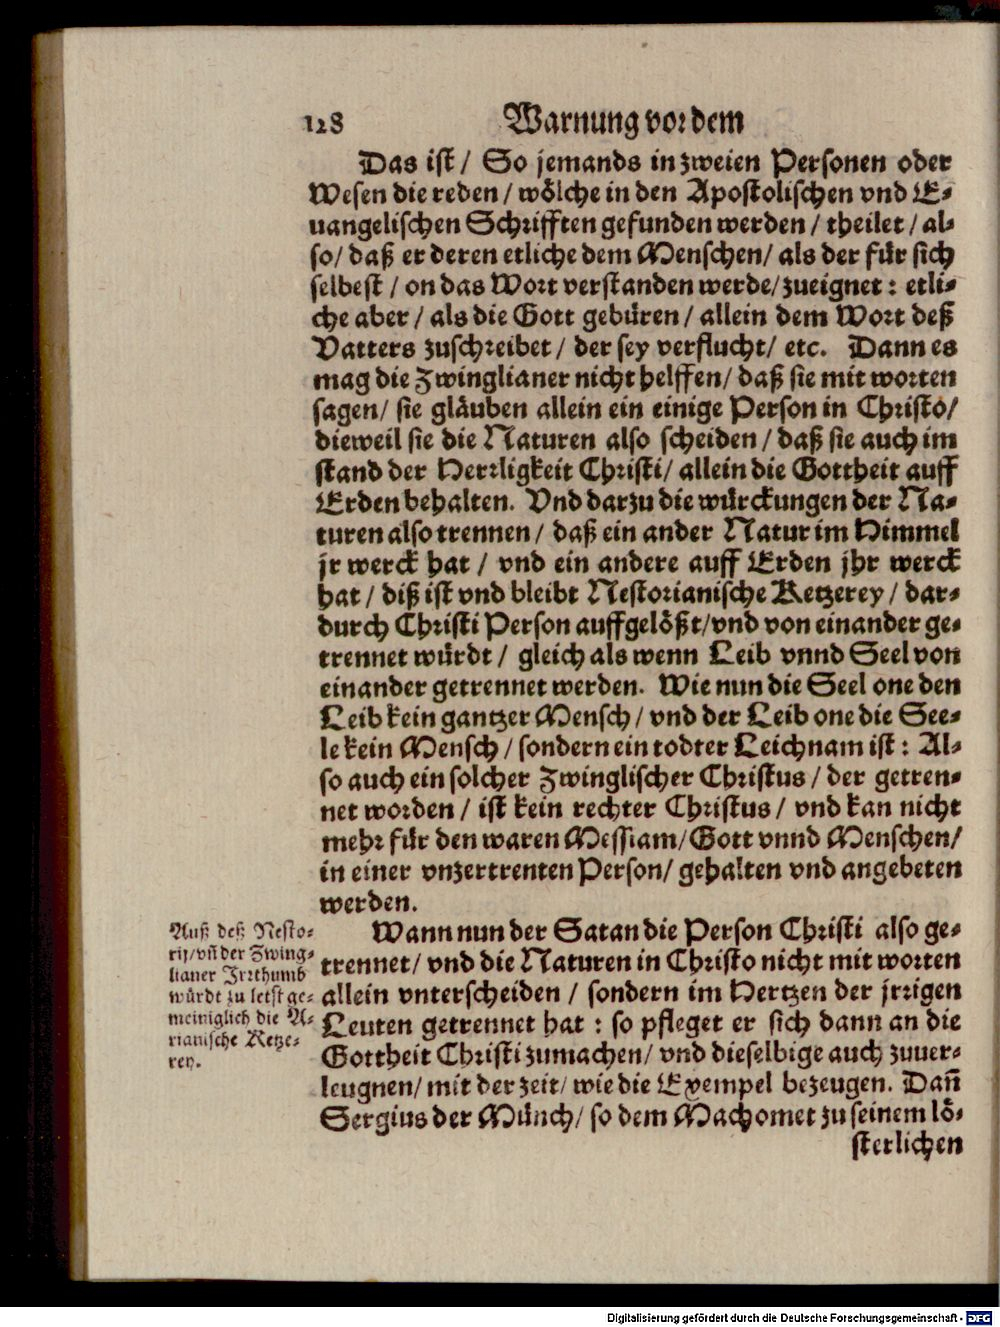 128 Warnung vor dem
Das ist / So jemands in zweien Personen oder
Wesen die reden / wölche in den Apostolischen vnd E-
uangelischen Schrifften gefunden werden / theilet / al-
so / daß er deren etliche dem Menschen / als der für sich
selbest / on das Wort verstanden werde / zueignet : etli-
che aber / als die Gott gebüren / allein dem Wort deß
Vatters zuschreibet / der sey verflucht / etc. Dann es
mag die Zwinglianer nicht helffen / daß sie mit worten
sagen / sie gläuben allein ein einige Person in Christo /
dieweil sie die Naturen also scheiden / daß sie auch im
stand der Herrligkeit Christi / allein die Gottheit auff
Erden behalten. Vnd darzu die würckungen der Na-
turen also trennen / daß ein ander Natur im Himmel
jr werck hat / vnd ein andere auff Erden jhr werck
hat / diß ist vnd bleibt Nestorianische Ketzerey / dar-
durch Christi Person auffgelößt / vnd von einander ge-
trennet würdt / gleich als wenn Leib vnnd Seel von
einander getrennet werden. Wie nun die Seel one den
Leib kein gantzer Mensch / vnd der Leib one die See-
le kein Mensch / sondern ein todter Leichnam ist : Al-
so auch ein solcher Zwinglischer Christus / der getren-
net worden / ist kein rechter Christus / vnd kan nicht
mehr für den waren Messiam / Gott vnnd Menschen /
in einer vnzertrenten Person / gehalten vnd angebeten
werden.
Auß deß Nesto-
rij / vñ der Zwing-
lianer Irrthumb
würdt zu letst ge-
meiniglich die A-
rianische Ketze-
rey.
Wann nun der Satan die Person Christi also ge-
trennet / vnd die Naturen in Christo nicht mit worten
allein vnterscheiden / sondern im Hertzen der jrrigen
Leuten getrennet hat : so pfleget er sich dann an die
Gottheit Christi zumachen / vnd dieselbige auch zuuer-
leugnen / mit der zeit / wie die Exempel bezeugen. Dañ
Sergius der Münch / so dem Machomet zu seinem lö-
sterlichen
Digitalisierung gefördert durch die Deutsche Forschungsgemeinschaft - DFG